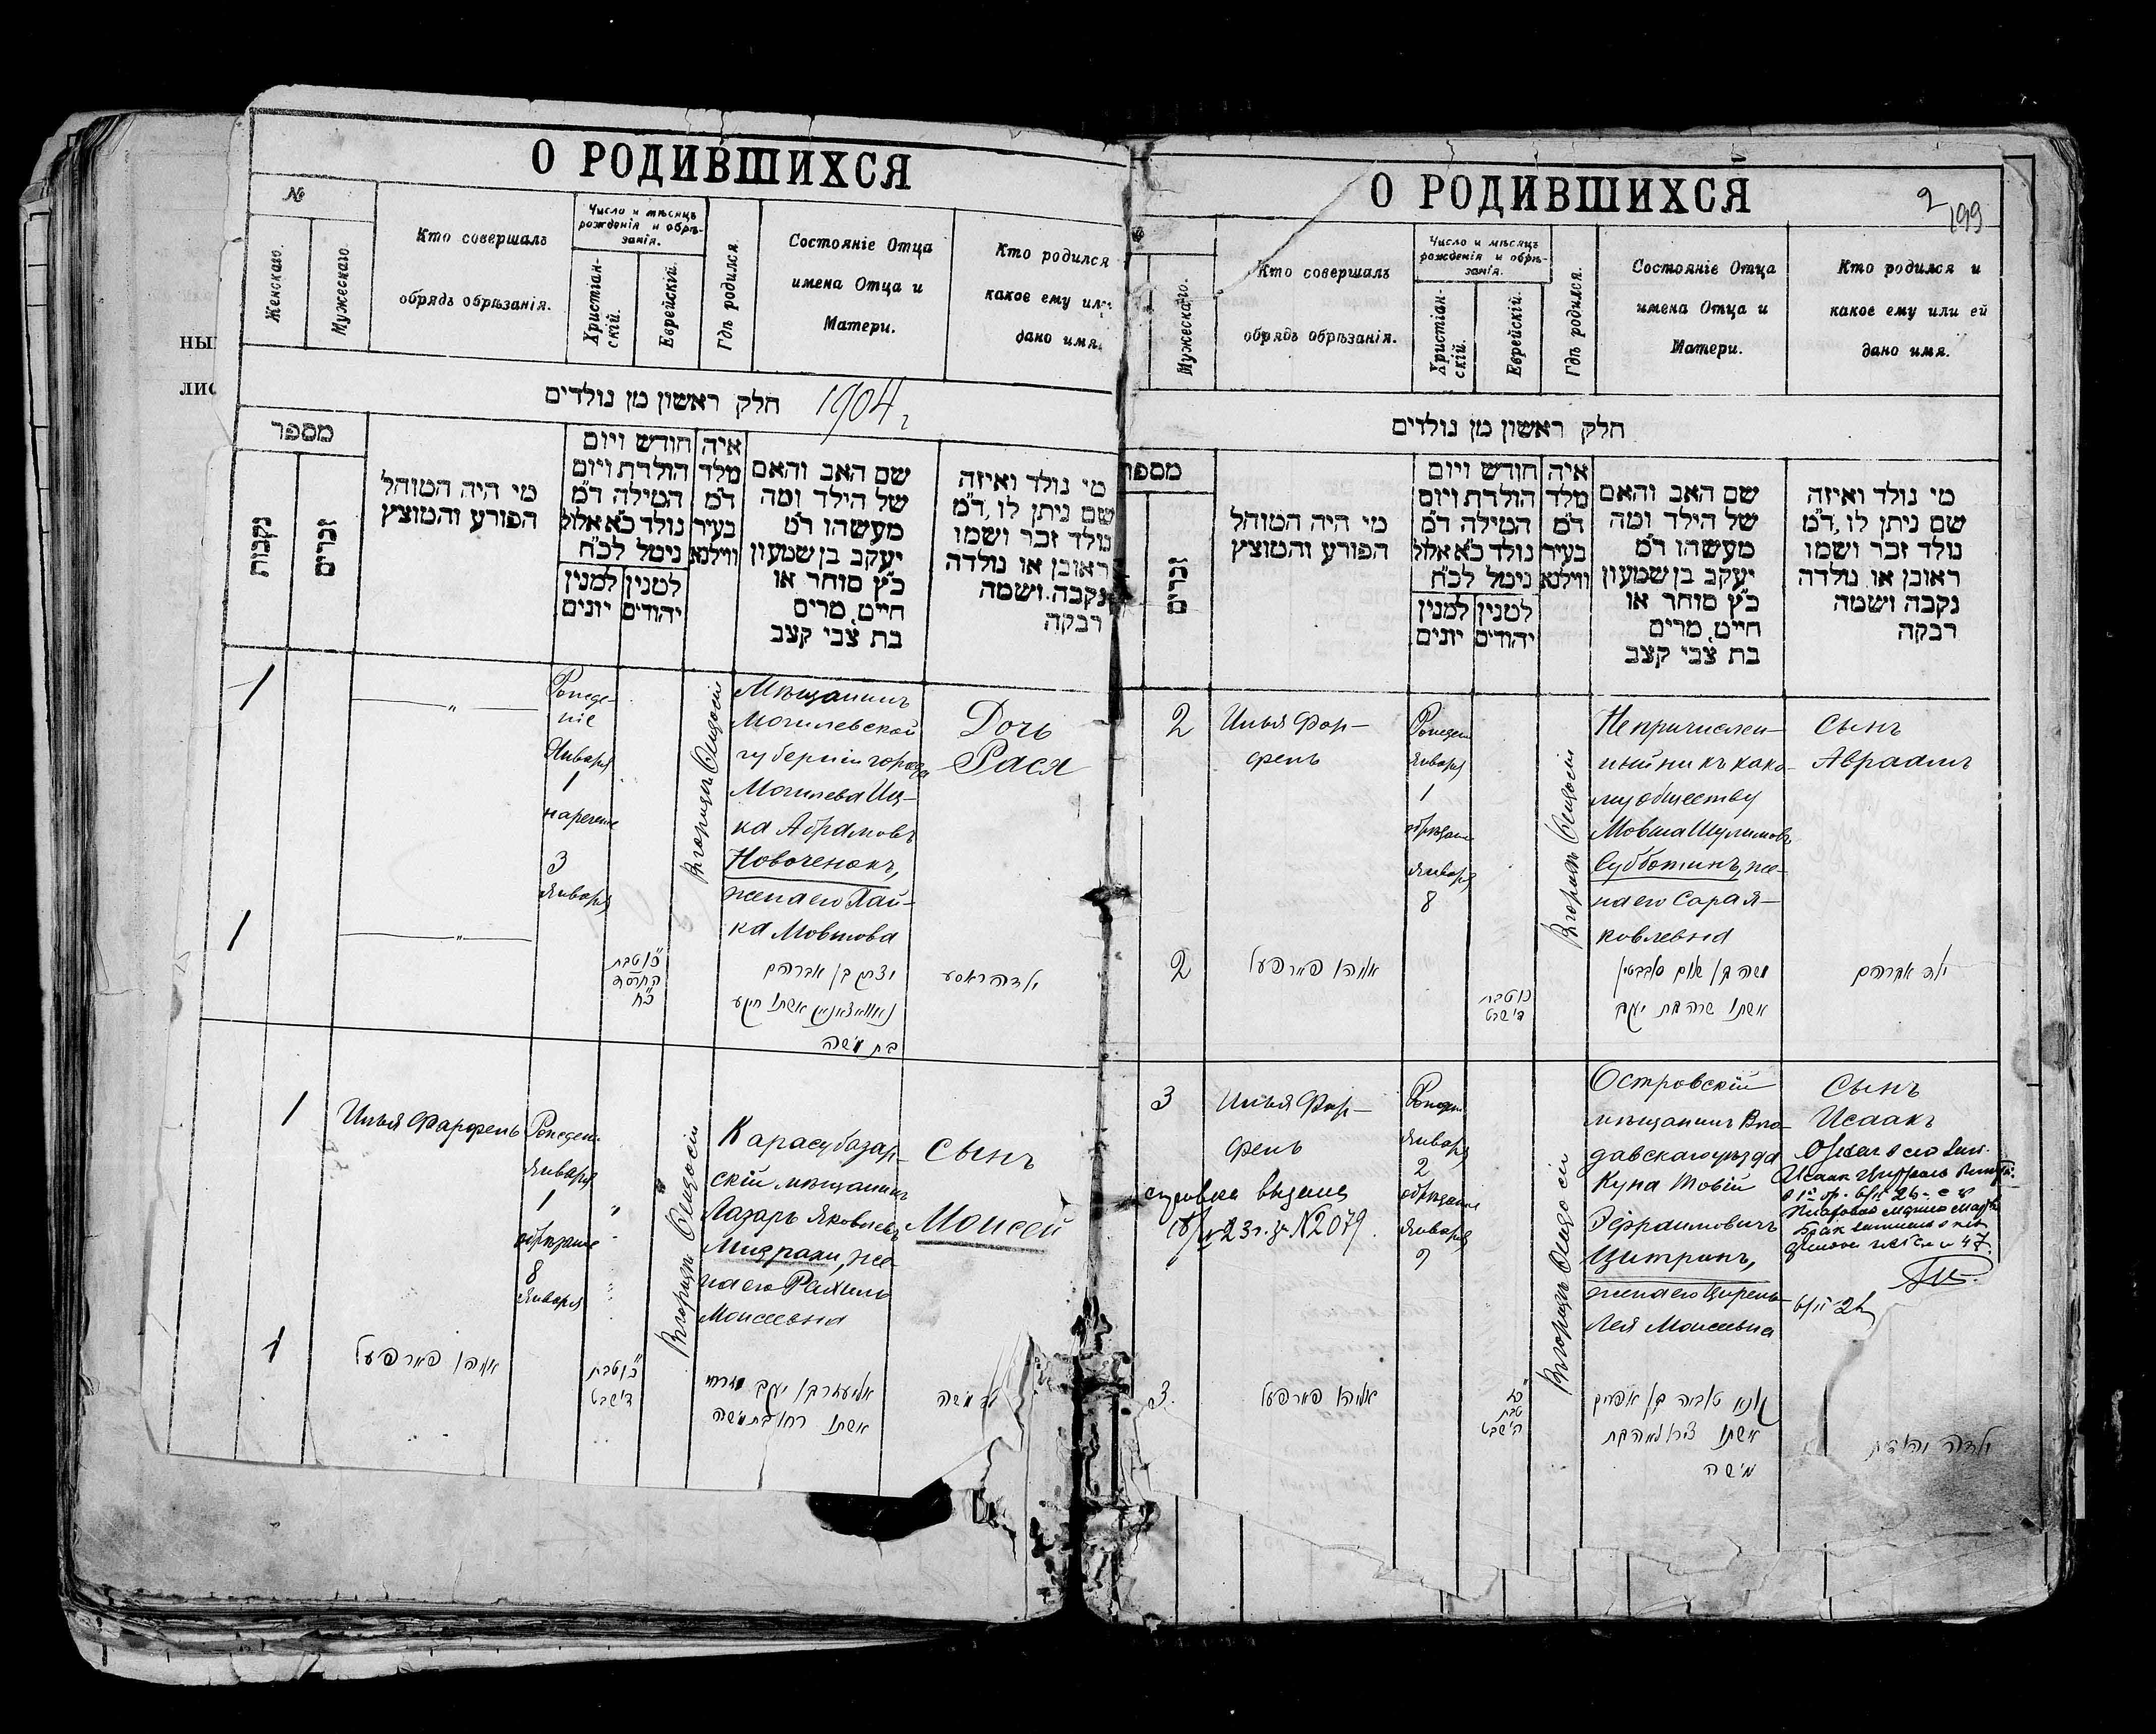 О РОДИВШИХСЯ
№
Женскаго.
Мужескаго.
Кто совершалъ
обрядъ обрѣзанія.
Число и мѣсяцъ
рожденія и обрѣ-
занія.
Христіан-
скій.
Еврейскій.
Гдѣ родился.
Состояніе Отца
имена Отца и
Матери.
Кто родился
какое ему или
дано имя.
חלק ראשון מן נולדים 1904 г.
מספר
נקבות
זכרים
מי היה המוהל
הפורע והמוצץ
חודש ויום
הולדת ויום
המילה ד״מ
נולד כ״א אלול
נימל לכ״ח
למנין יהודים
למנין יונים
איה
מלד
ד״מ
בעיר
ווילנא
שם האב והאם
של הילד ומה
מעשהו ד״מ
יעקב בן שמעון
כ״ץ סוחר או
חייט, מרים
בת צבי קצב
מי נולד ואיזה
שם ניתן לו, ד״מ
נולד זכר ושמו
ראובן או נולדה
נקבה ושמה
רבקה
1
Рожде-
ніе
Января
1
нареченіе
3
Января
Въ городѣ Ѳеодосіи
Мѣщанинъ
Могилевской
губерніи города
Могилева Иц-
ка Абрамовъ
Новоченокъ,
жена его Хай-
ка Мовшова
Дочь
Рася
1
כ״ו טבת
התרסד
כ״ח
יצחק בן אברהם
אשתו חיקע
בת משה
ילדה ראסע
1
Илья Фарфель
Рожден.
Января
1
обрѣзаніе
8
Января
Въ городѣ Ѳеодосіи
Карасубазар-
скій мѣщанинъ
Лазарь Яковлевъ
Мизрахи, же-
на его Рахиль
Моисеевна
Сынъ
Моисей
1
אליהו פארפעל
כ״ו טבת
ד׳ שבט
אליעזר בן יעקב מזרחי
אשתו רחל בת משה
ילד משה
О РОДИВШИХСЯ
2
199
Мужескаго.
Кто совершалъ
обрядъ обрѣзанія.
Число и мѣсяцъ
рожденія и обрѣ-
занія.
Христіан-
скій.
Еврейскій.
Гдѣ родился.
Состояніе Отца
имена Отца и
Матери.
Кто родился и
какое ему или ей
дано имя.
חלק ראשון מן נולדים
מספר
זכרים
מי היה המוהל
הפורע והמוצץ
חודש ויום
הולדת ויום
המילה ד״מ
נולד כ״א אלול
נימל לכ״ח
למנין יהודים
למנין יונים
איה
מלד
ד״מ
בעיר
ווילנא
שם האב והאם
של הילד ומה
מעשהו ד״מ
יעקב בן שמעון
כ״ץ סוחר או
חייט, מרים
בת צבי קצב
מי נולד ואיזה
שם ניתן לו, ד״מ
נולד זכר ושמו
ראובן או נולדה
נקבה ושמה
רבקה
2
Илья Фар-
фель
Рожден
Января
1
обрѣзаніе
Января
8
Въ городѣ Ѳеодосіи
Непричислен-
ный ни къ како-
му обществу
Мовша Шулимовъ
Субботинъ, же-
на его Сара Я-
ковлевна
Сынъ
Авраамъ
2
אליהו פארפעל
כו טבת
ד׳ שבט
משה בן שלום סובבטין
אשתו שרה בת יעקב
ילד אברהם
3
Илья Фар-
фель
справка выдана
23 г. за № 2079.
Рожден
Января
2
обрѣзаніе
Января
9
Въ городѣ Ѳеодосіи
Островскій
мѣщанинъ Вло-
давскаго уѣзда
Куна Товій
Эфраимовичъ
Цитринъ,
жена его Цирель
Лея Моисеевна
Сынъ
Исаакъ
3.
אליהו פארפעל
כ״ז
טבת
ה׳ שבט
קונא טוביה בן אפרים
אשתו צירל לאה בת
משה